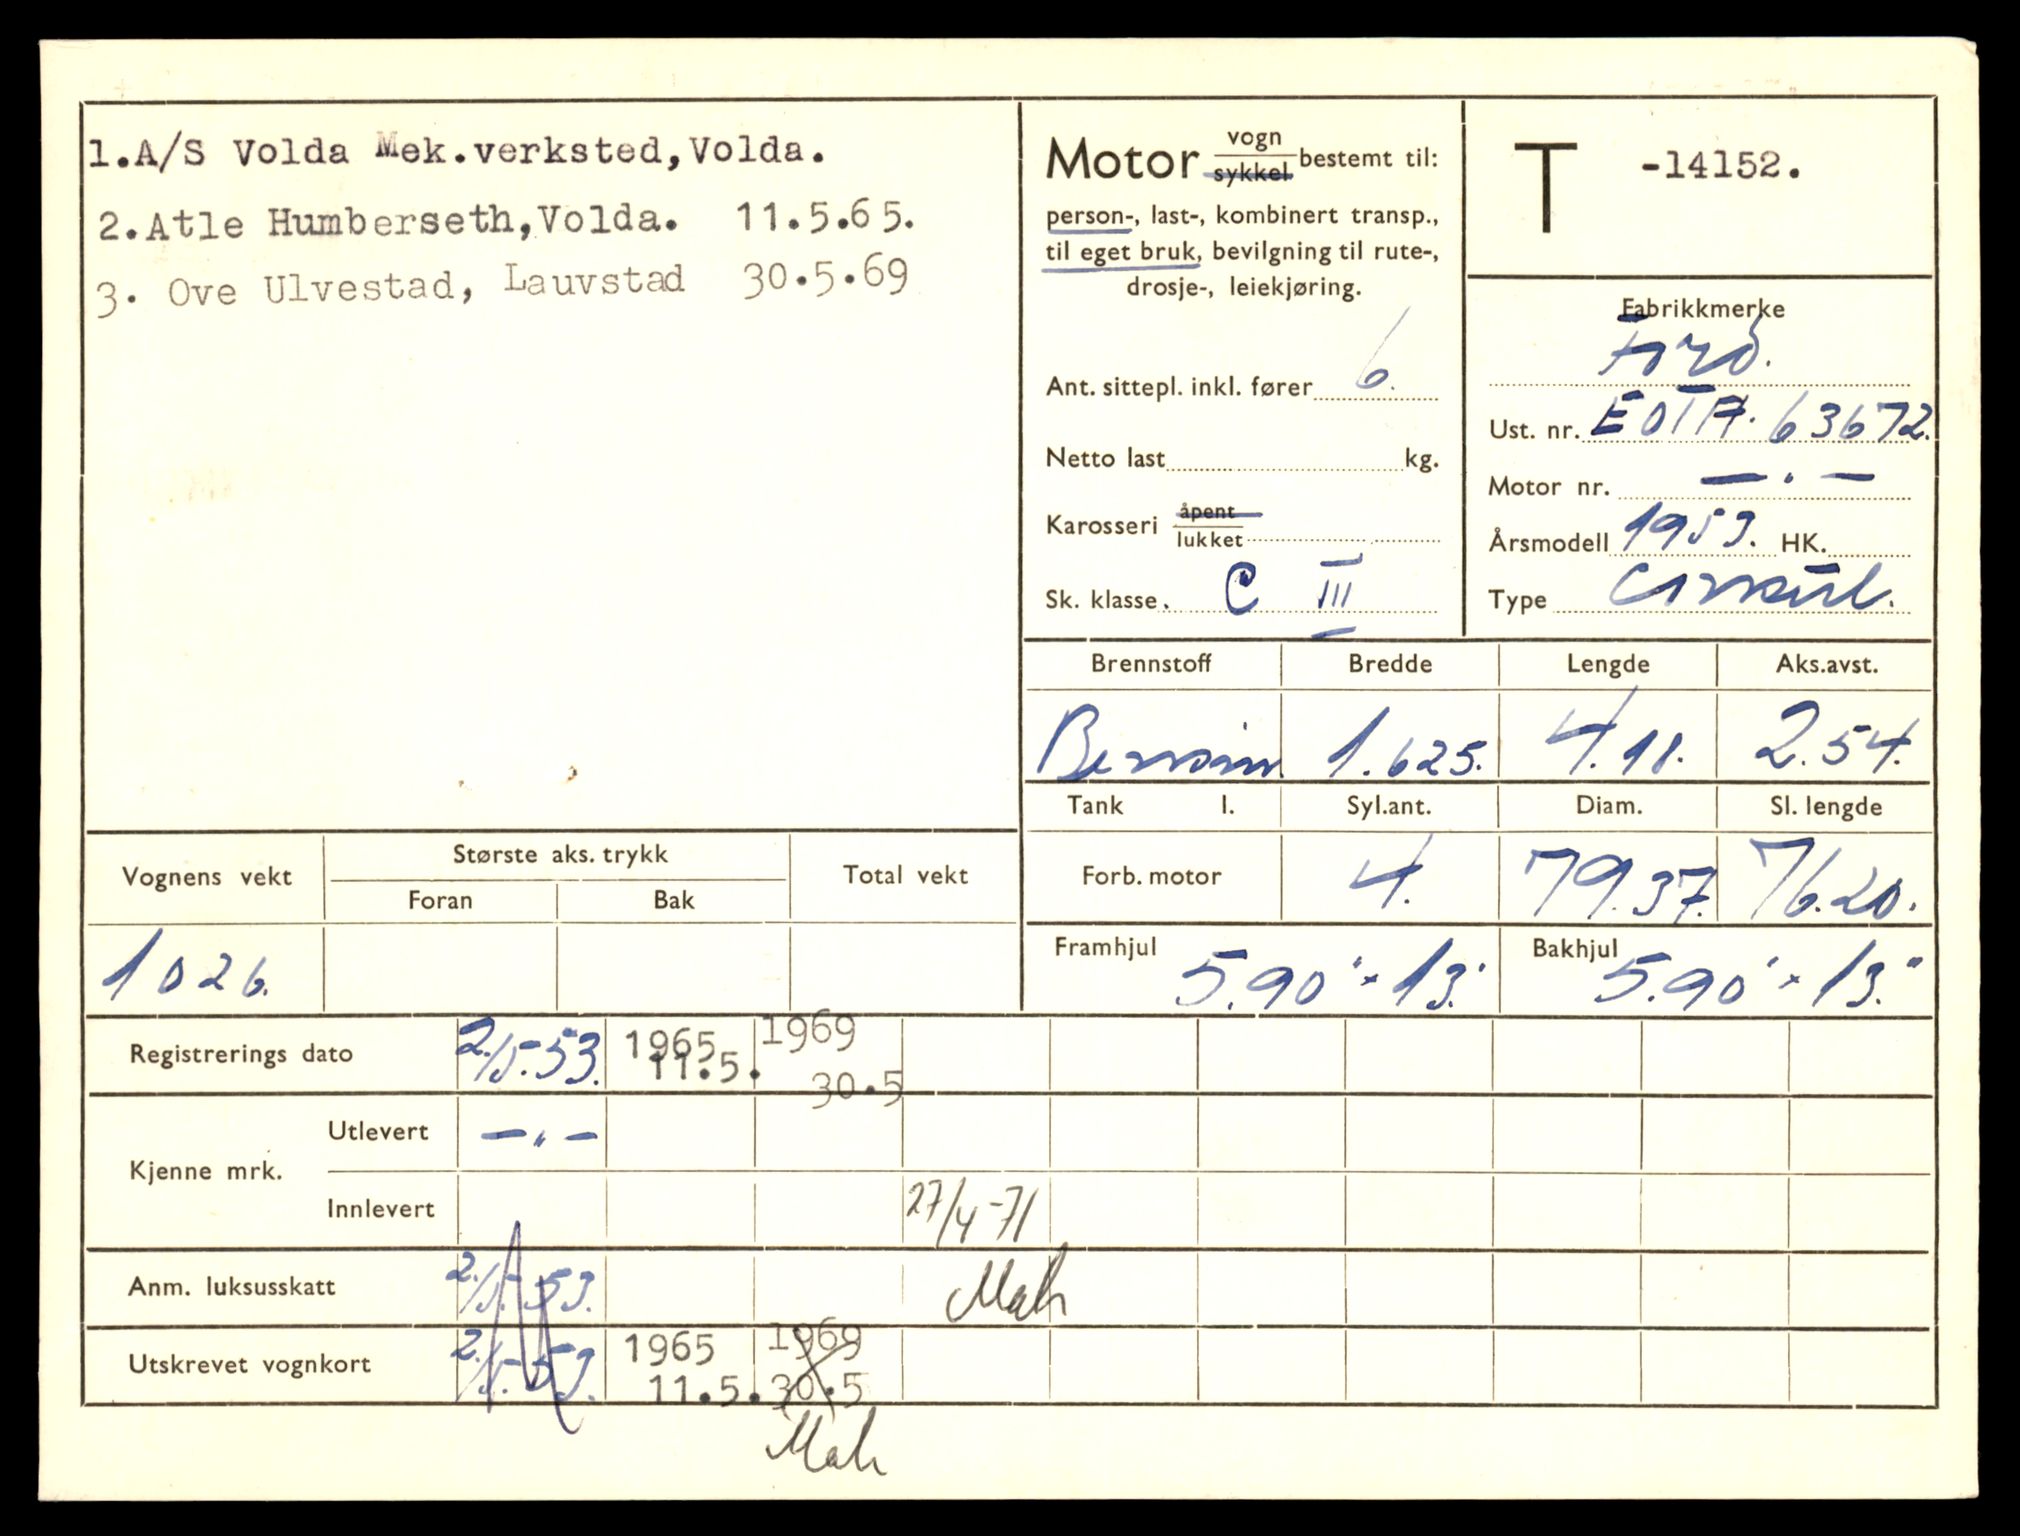 1.A/S Volda Mek.verksted,Volda.
2.Atle Humberseth,Volda. 11.5.65.
3. Ove Ulvestad, Lauvstad 30.5.69
Motor vogn/sykkel bestemt til:
person-, last-, kombinert transp.,
til eget bruk, bevilgning til rute-,
drosje-, leiekjøring.
Ant. sittepl. inkl. fører 6.
Netto last kg.
Karosseri åpent/lukket
Sk. klasse. C III
T -14152.
Fabrikkmerke
Ford.
Ust. nr. EOTA. 63672.
Motor nr. — " —
Årsmodell 1953. HK.
Type Consul.
Brennstoff Bredde Lengde Aks.avst.
Bensin 1.625. 4.18. 2.54.
Tank l. Syl.ant. Diam. Sl. lengde
Forb. motor 4. 79.37. 76.20.
Framhjul 5.90" × 13." Bakhjul 5.90" × 13."
Vognens vekt Største aks. trykk Total vekt
Foran Bak
1026.
Registrerings dato 2./5-53. 1965 11.5. 1969 30.5
Kjenne mrk. Utlevert — " —
Innlevert 27/4-71
Anm. luksusskatt 2./5-53.
Utskrevet vognkort 2./5-53. 1965 11.5. 1969 30.5